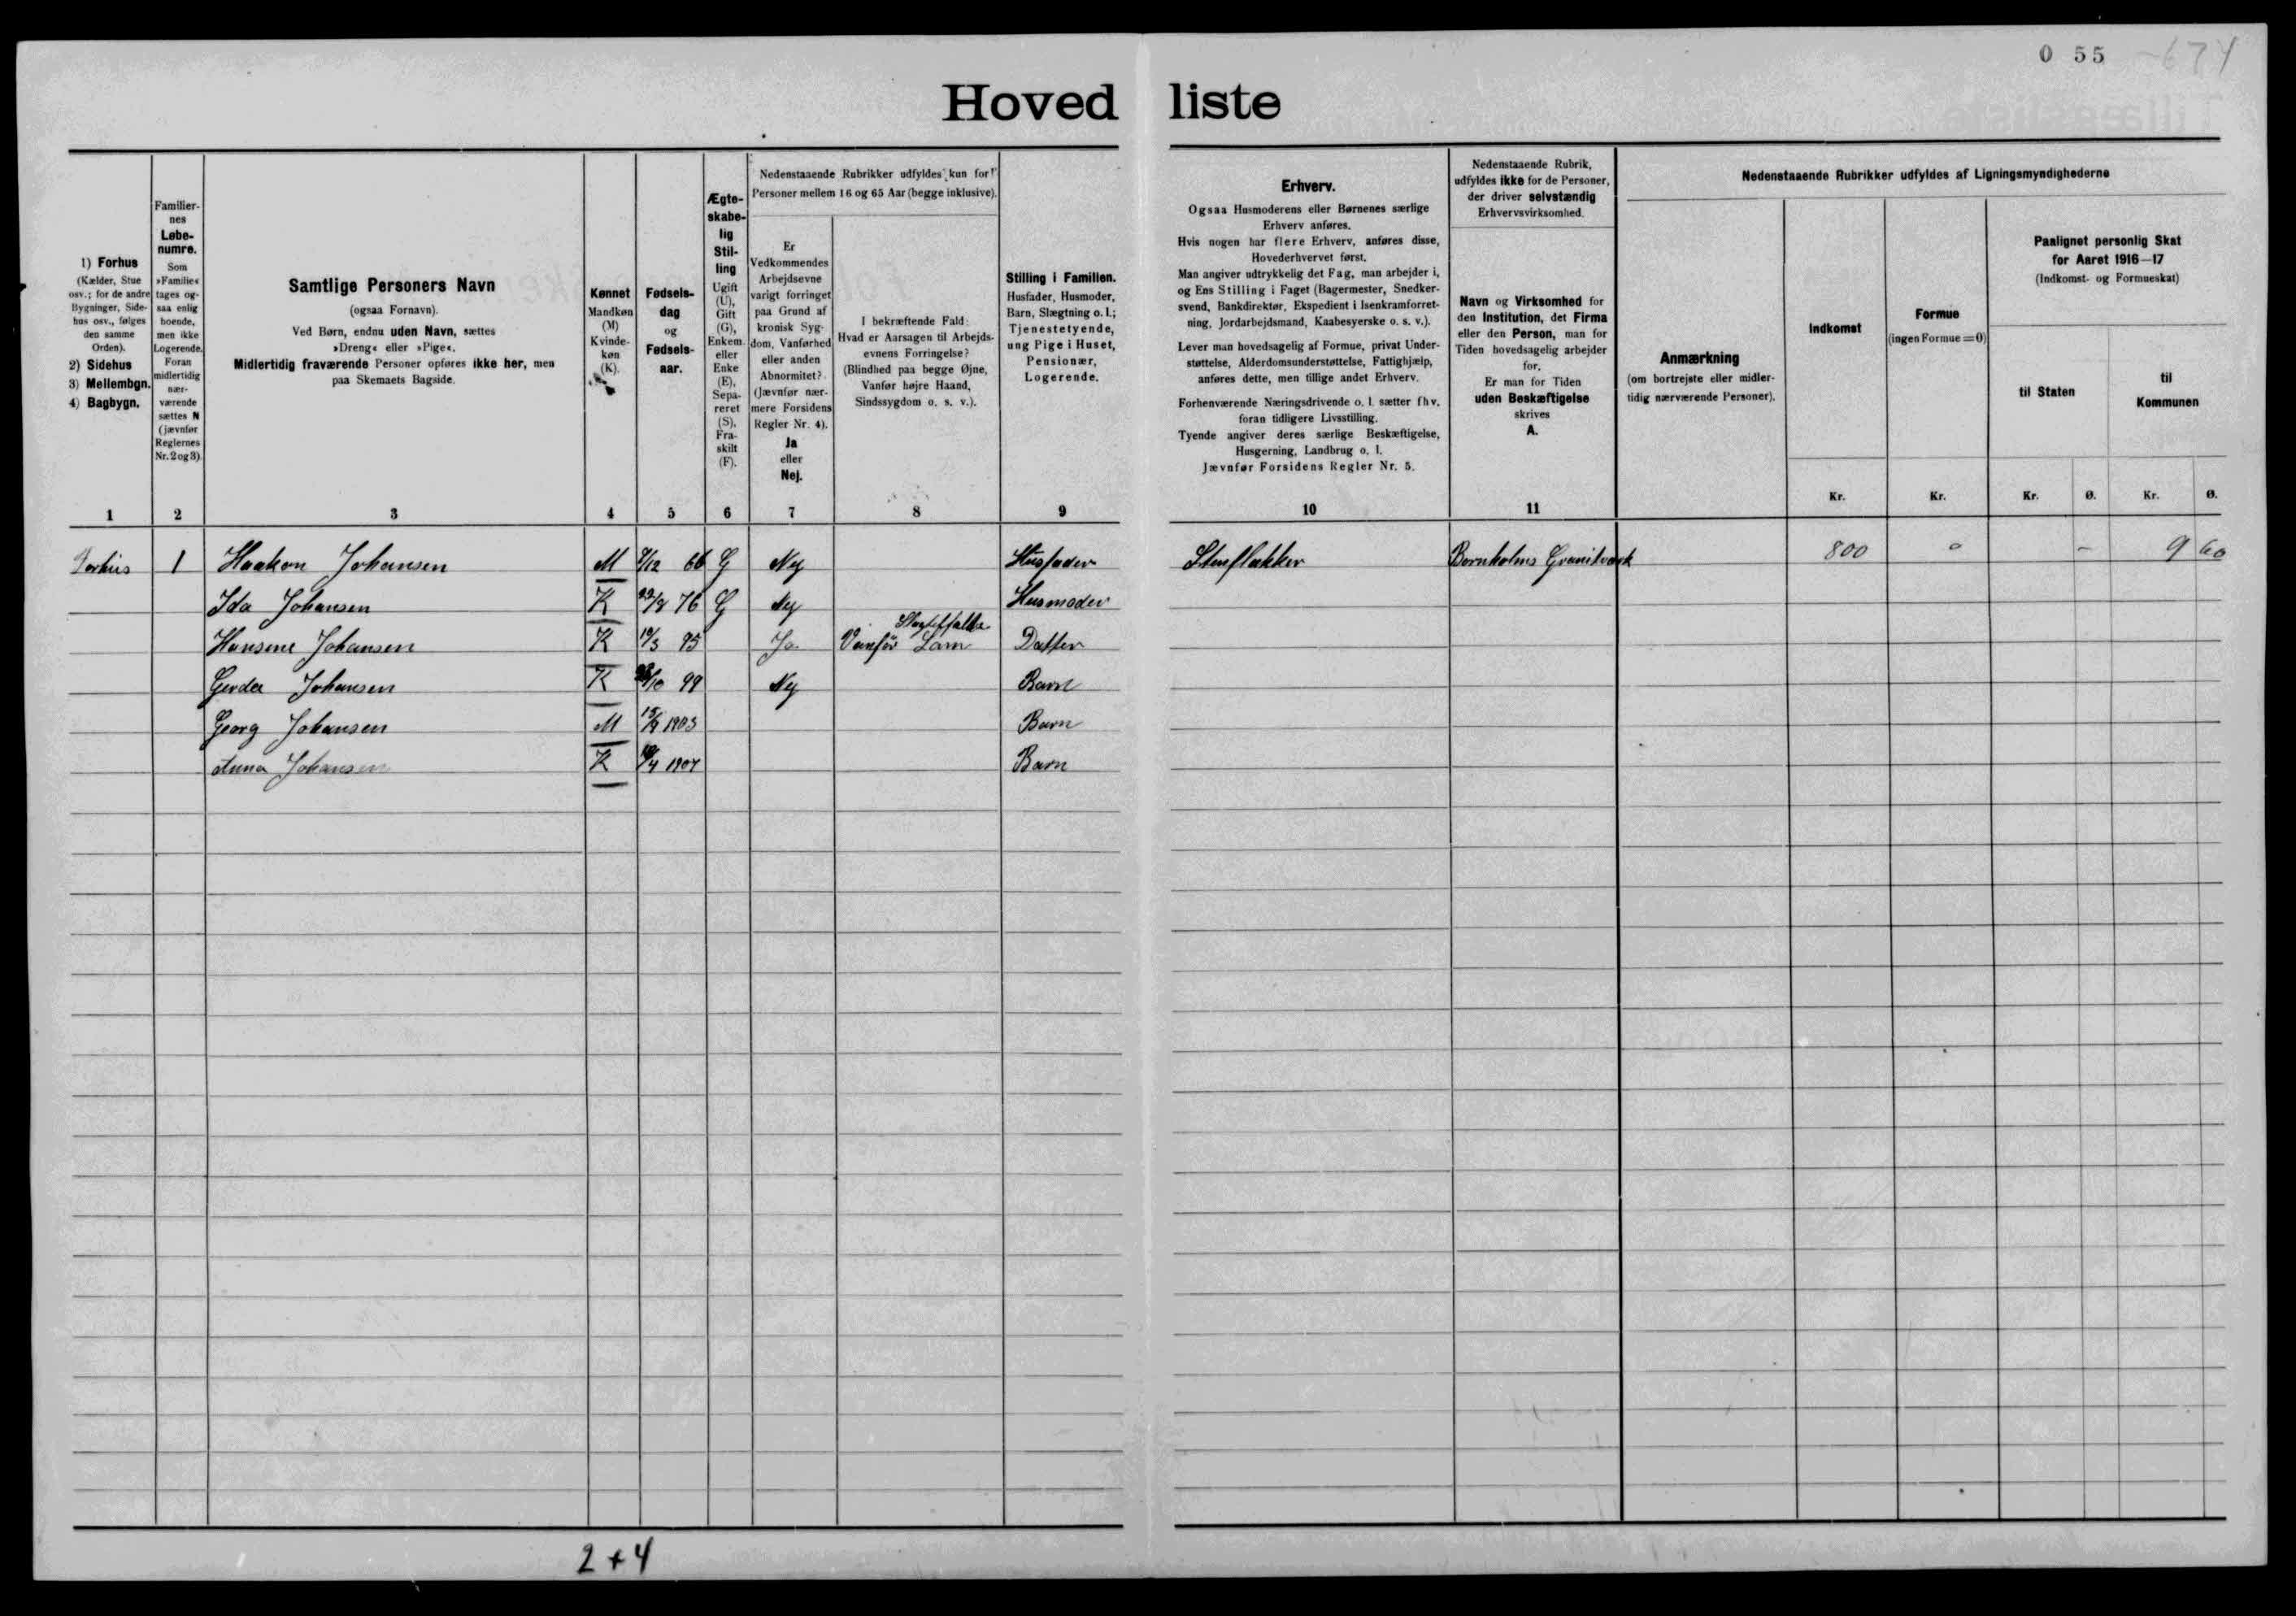 0 55 -674
Hoved liste
1) Forhus
(Kælder, Stue
osv.; for de andre
Bygninger, Side-
hus osv., følges
den samme
Orden).
2) Sidehus
3) Mellembgn.
4) Bagbygn.
Familier-
nes
Løbe-
numre.
Som
»Familie«
tages og-
saa enlig
boende,
men ikke
Logerende.
Foran
midlertidig
nær-
værende
sættes N
(jævnfør
Reglernes
Nr. 2 og 3)
Samtlige Personers Navn
(ogsaa Fornavn).
Ved Børn, endnu uden Navn, sættes
»Dreng« eller »Pige«.
Midlertidig fraværende Personer opføres ikke her, men
paa Skemaets Bagside.
Kønnet
Mandkøn
(M)
Kvinde-
køn
(K).
Fødsels-
dag
og
Fødsels-
aar.
Ægte-
skabe-
lig
Stil-
ling
Ugift
(U),
Gift
(G),
Enkem.
eller
Enke
(E),
Sepa-
reret
(S),
Fra-
skilt
(F).
Nedenstaaende Rubrikker udfyldes kun for
Personer mellem 16 og 65 Aar (begge inklusive).
Er
Vedkommendes
Arbejdsevne
varigt forringet
paa Grund af
kronisk Syg-
dom, Vanførhed
eller anden
Abnormitet?
(Jævnfør nær-
mere Forsidens
Regler Nr. 4).
Ja
eller
Nej.
I bekræftende Fald:
Hvad er Aarsagen til Arbejds-
evnens Forringelse?
(Blindhed paa begge Øjne,
Vanfør højre Haand,
Sindssygdom o. s. v.).
Stilling i Familien.
Husfader, Husmoder,
Barn, Slægtning o. l.;
Tjenestetyende,
ung Pige i Huset,
Pensionær,
Logerende.
Erhverv.
Ogsaa Husmoderens eller Børnenes særlige
Erhverv anføres.
Hvis nogen har flere Erhverv, anføres disse,
Hovederhvervet først.
Man angiver udtrykkelig det Fag, man arbejder i,
og Ens Stilling i Faget (Bagermester, Snedker-
svend, Bankdirektør, Ekspedient i Isenkramforret-
ning, Jordarbejdsmand, Kaabesyerske o. s. v.).
Lever man hovedsagelig af Formue, privat Under-
støttelse, Alderdomsunderstøttelse, Fattighjælp,
anføres dette, men tillige andet Erhverv.
Forhenværende Næringsdrivende o. l. sætter fhv.
foran tidligere Livsstilling.
Tyende angiver deres særlige Beskæftigelse,
Husgerning, Landbrug o. l.
Jævnfør Forsidens Regler Nr. 5.
Nedenstaaende Rubrik,
udfyldes ikke for de Personer,
der driver selvstændig
Erhvervsvirksomhed.
Navn og Virksomhed for
den Institution, det Firma
eller den Person, man for
Tiden hovedsagelig arbejder
for.
Er man for Tiden
uden Beskæftigelse
skrives
A.
Nedenstaaende Rubrikker udfyldes af Ligningsmyndighederne
Anmærkning
(om bortrejste eller midler-
tidig nærværende Personer).
Indkomst
Formue
(ingen Formue = 0)
Paalignet personlig Skat
for Aaret 1916—17
(Indkomst- og Formueskat)
til Staten
til
Kommunen
Kr. Kr. Kr. Ø. Kr. Ø.
1 2 3 4 5 6 7 8 9 10 11
Forhus 1 Haakon Johansen M 9/12 66 G Nej Husfader Stenflækker Bornholms Granitværk 800 0 - 9 60
Ida Johansen K 22/8 76 G Nej Husmoder
Hansine Johansen K 10/3 95 Ja Vanfør Lam Datter
Gerda Johansen K /10 99 Nej Barn
Georg Johansen M 15/9 1903 Barn
Anna Johansen K /4 1907 Barn
2+4